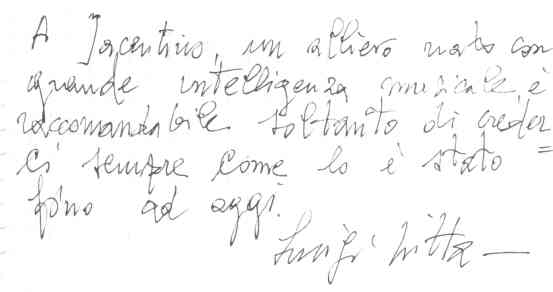 A Jacentino, un allievo nato con
grande intelligenza musicale, è
raccomandabile soltanto di creder
ci sempre come lo è stato =
fino ad oggi.
Luigi